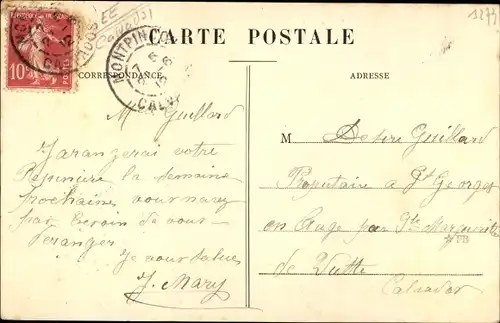 CARTE POSTALE
CORRESPONDANCE
ADRESSE
MONTPINÇON
CALV
10
1274
EE
Calvados
Mr Guillard
J'arangerai votre
Pepiniere la semaine
prochaine vous navez
pas besoin de vous
deranger
Je vous salue
J. Mary
M Desire Guillard
Propritaire a St Georges
en Auge par Ste Marguerite
de Viette
Calvados